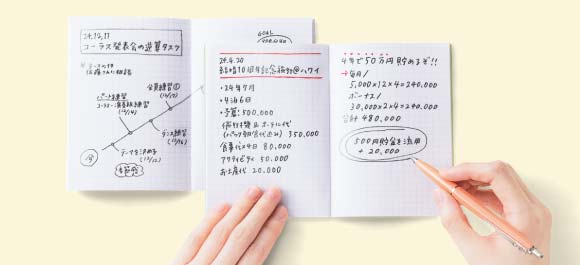 24.12.11
コーラス発表会の逆算タスク
GOAL
全員練習①
パート練習
ダンス練習
テーマを決める
今
24.4.20
結婚10周年記念旅行@ハワイ
・24年7月
・4泊6日
・予算:500,000
350,000
食事代×4日 80,000
アクティビティ 50,000
お土産代 20,000
4年で50万円貯めるぞ!!
→毎月/
5,000×12×4=240,000
ボーナス/
30,000×2×4=240,000
合計 480,000
500円貯金を流用
+20,000